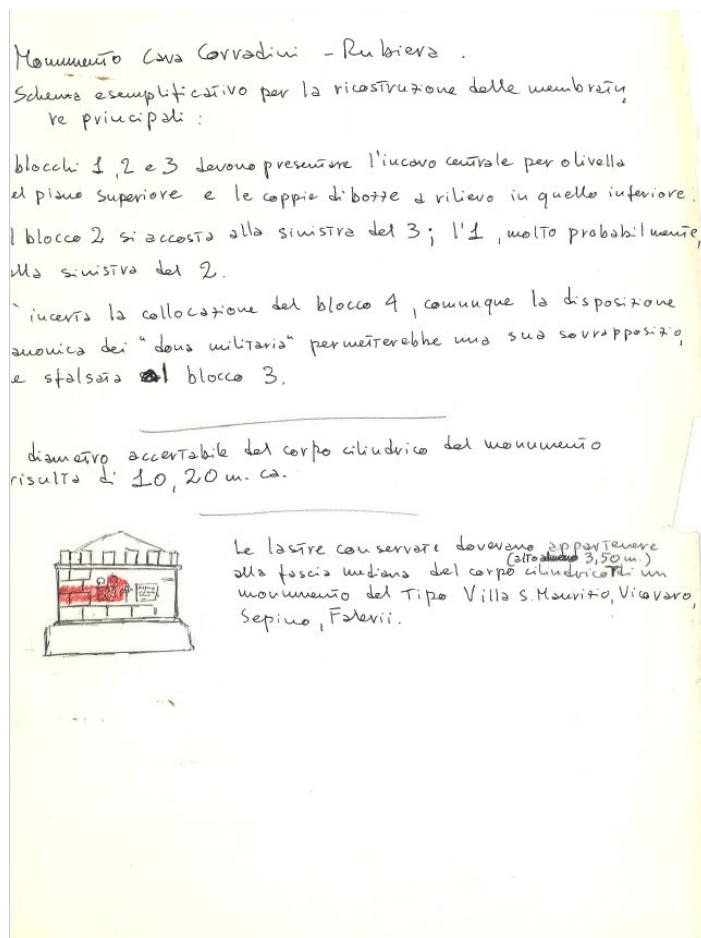 Monumento Cava Corradini - Rubiera.
Schema esemplificativo per la ricostruzione delle membratu
re principali :
blocchi 1, 2 e 3 devono presentare l'incavo centrale per olivella
el piano superiore e le coppie di bozze a rilievo in quello inferiore.
l blocco 2 si accosta alla sinistra del 3 ; l'1, molto probabilmente,
lla sinistra del 2.
incerta la collocazione del blocco 4, comunque la disposizione
anonica dei "dona militaria" permetterebbe una sua sovrapposizio
e sfalsata al blocco 3.
diametro accertabile del corpo cilindrico del monumento
risulta di 10,20 m. ca.
Le lastre conservate dovevano appartenere
(alto almeno 3,50 m.)
alla fascia mediana del corpo cilindrico di un
monumento del Tipo Villa S. Maurizio, Vicovaro,
Sepino, Falerii.